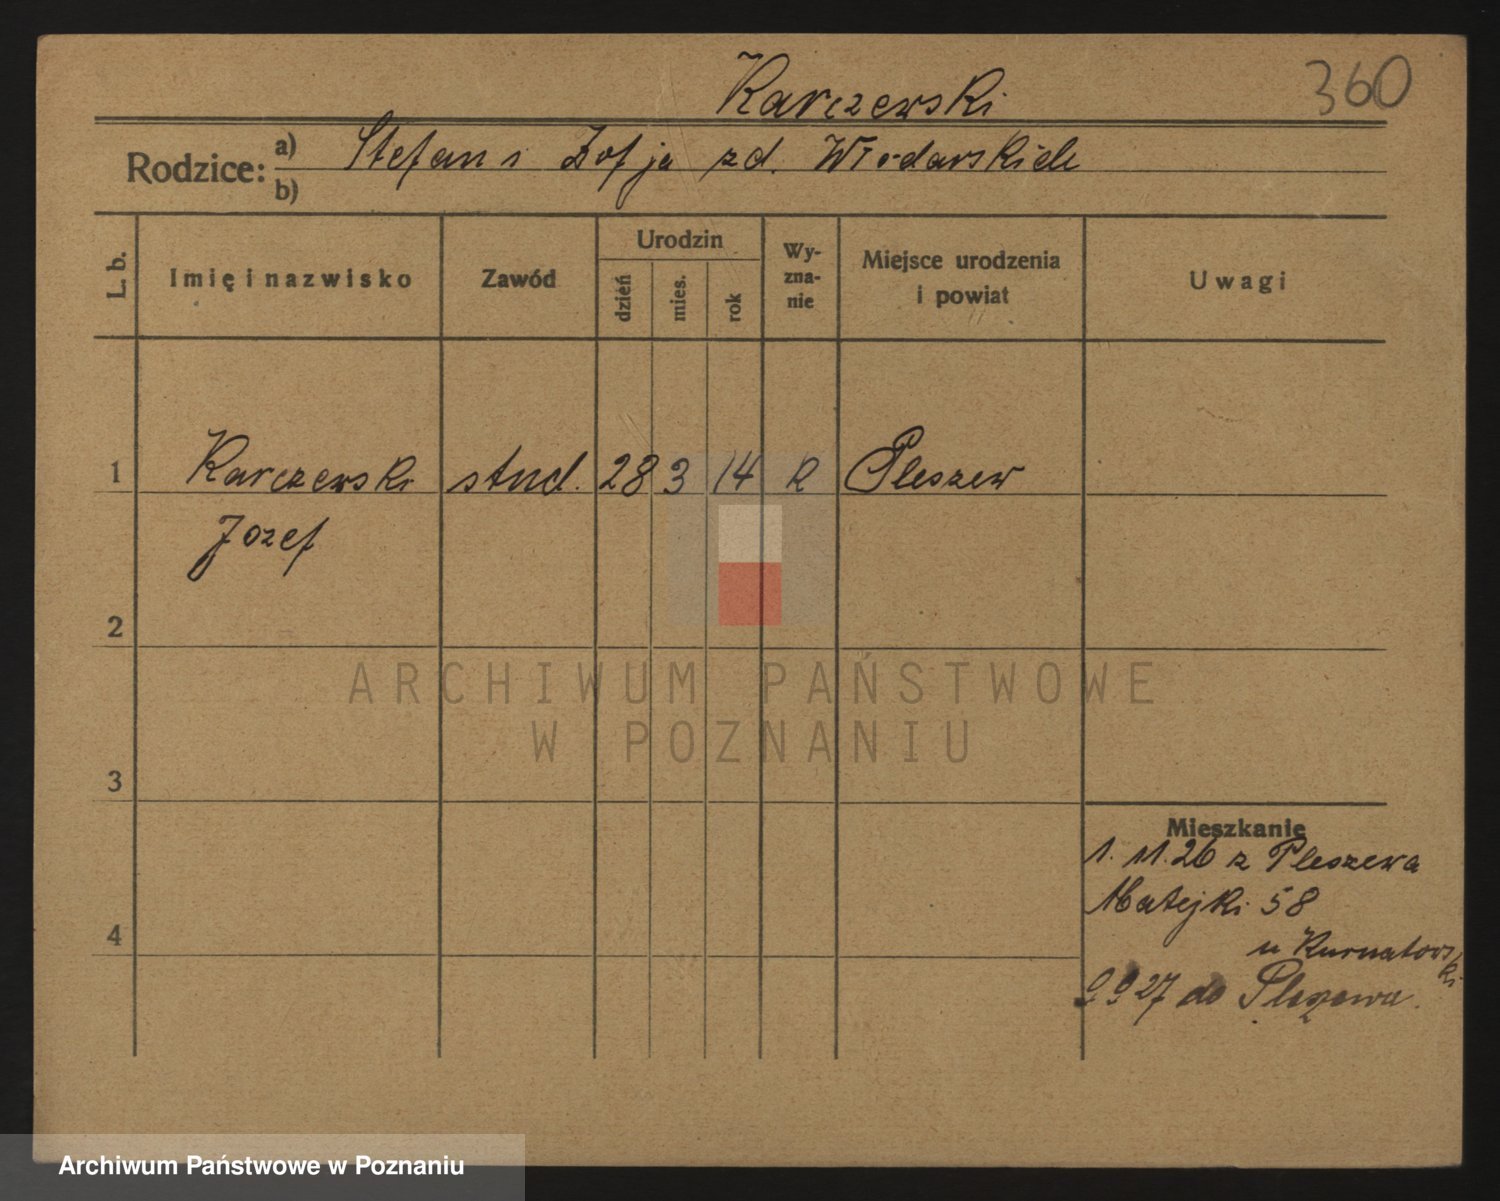 Karczewski
360
Rodzice: a) Stefan i Zofja zd. Włodarskich
b)
L. b.
Imię i nazwisko
Zawód
Urodzin
dzień
mies.
rok
Wy-
zna-
nie
Miejsce urodzenia
i powiat
Uwagi
1 Karczewski stud. 28 3 14 k Pleszew
Jozef
2
3
4
Mieszkanie
1. 11. 26 z Pleszewa
Matejki 58
u Kurnatows
ki
9 9 27 do Pleszewa.
ARCHIWUM PAŃSTWOWE
W POZNANIU
Archiwum Państwowe w Poznaniu